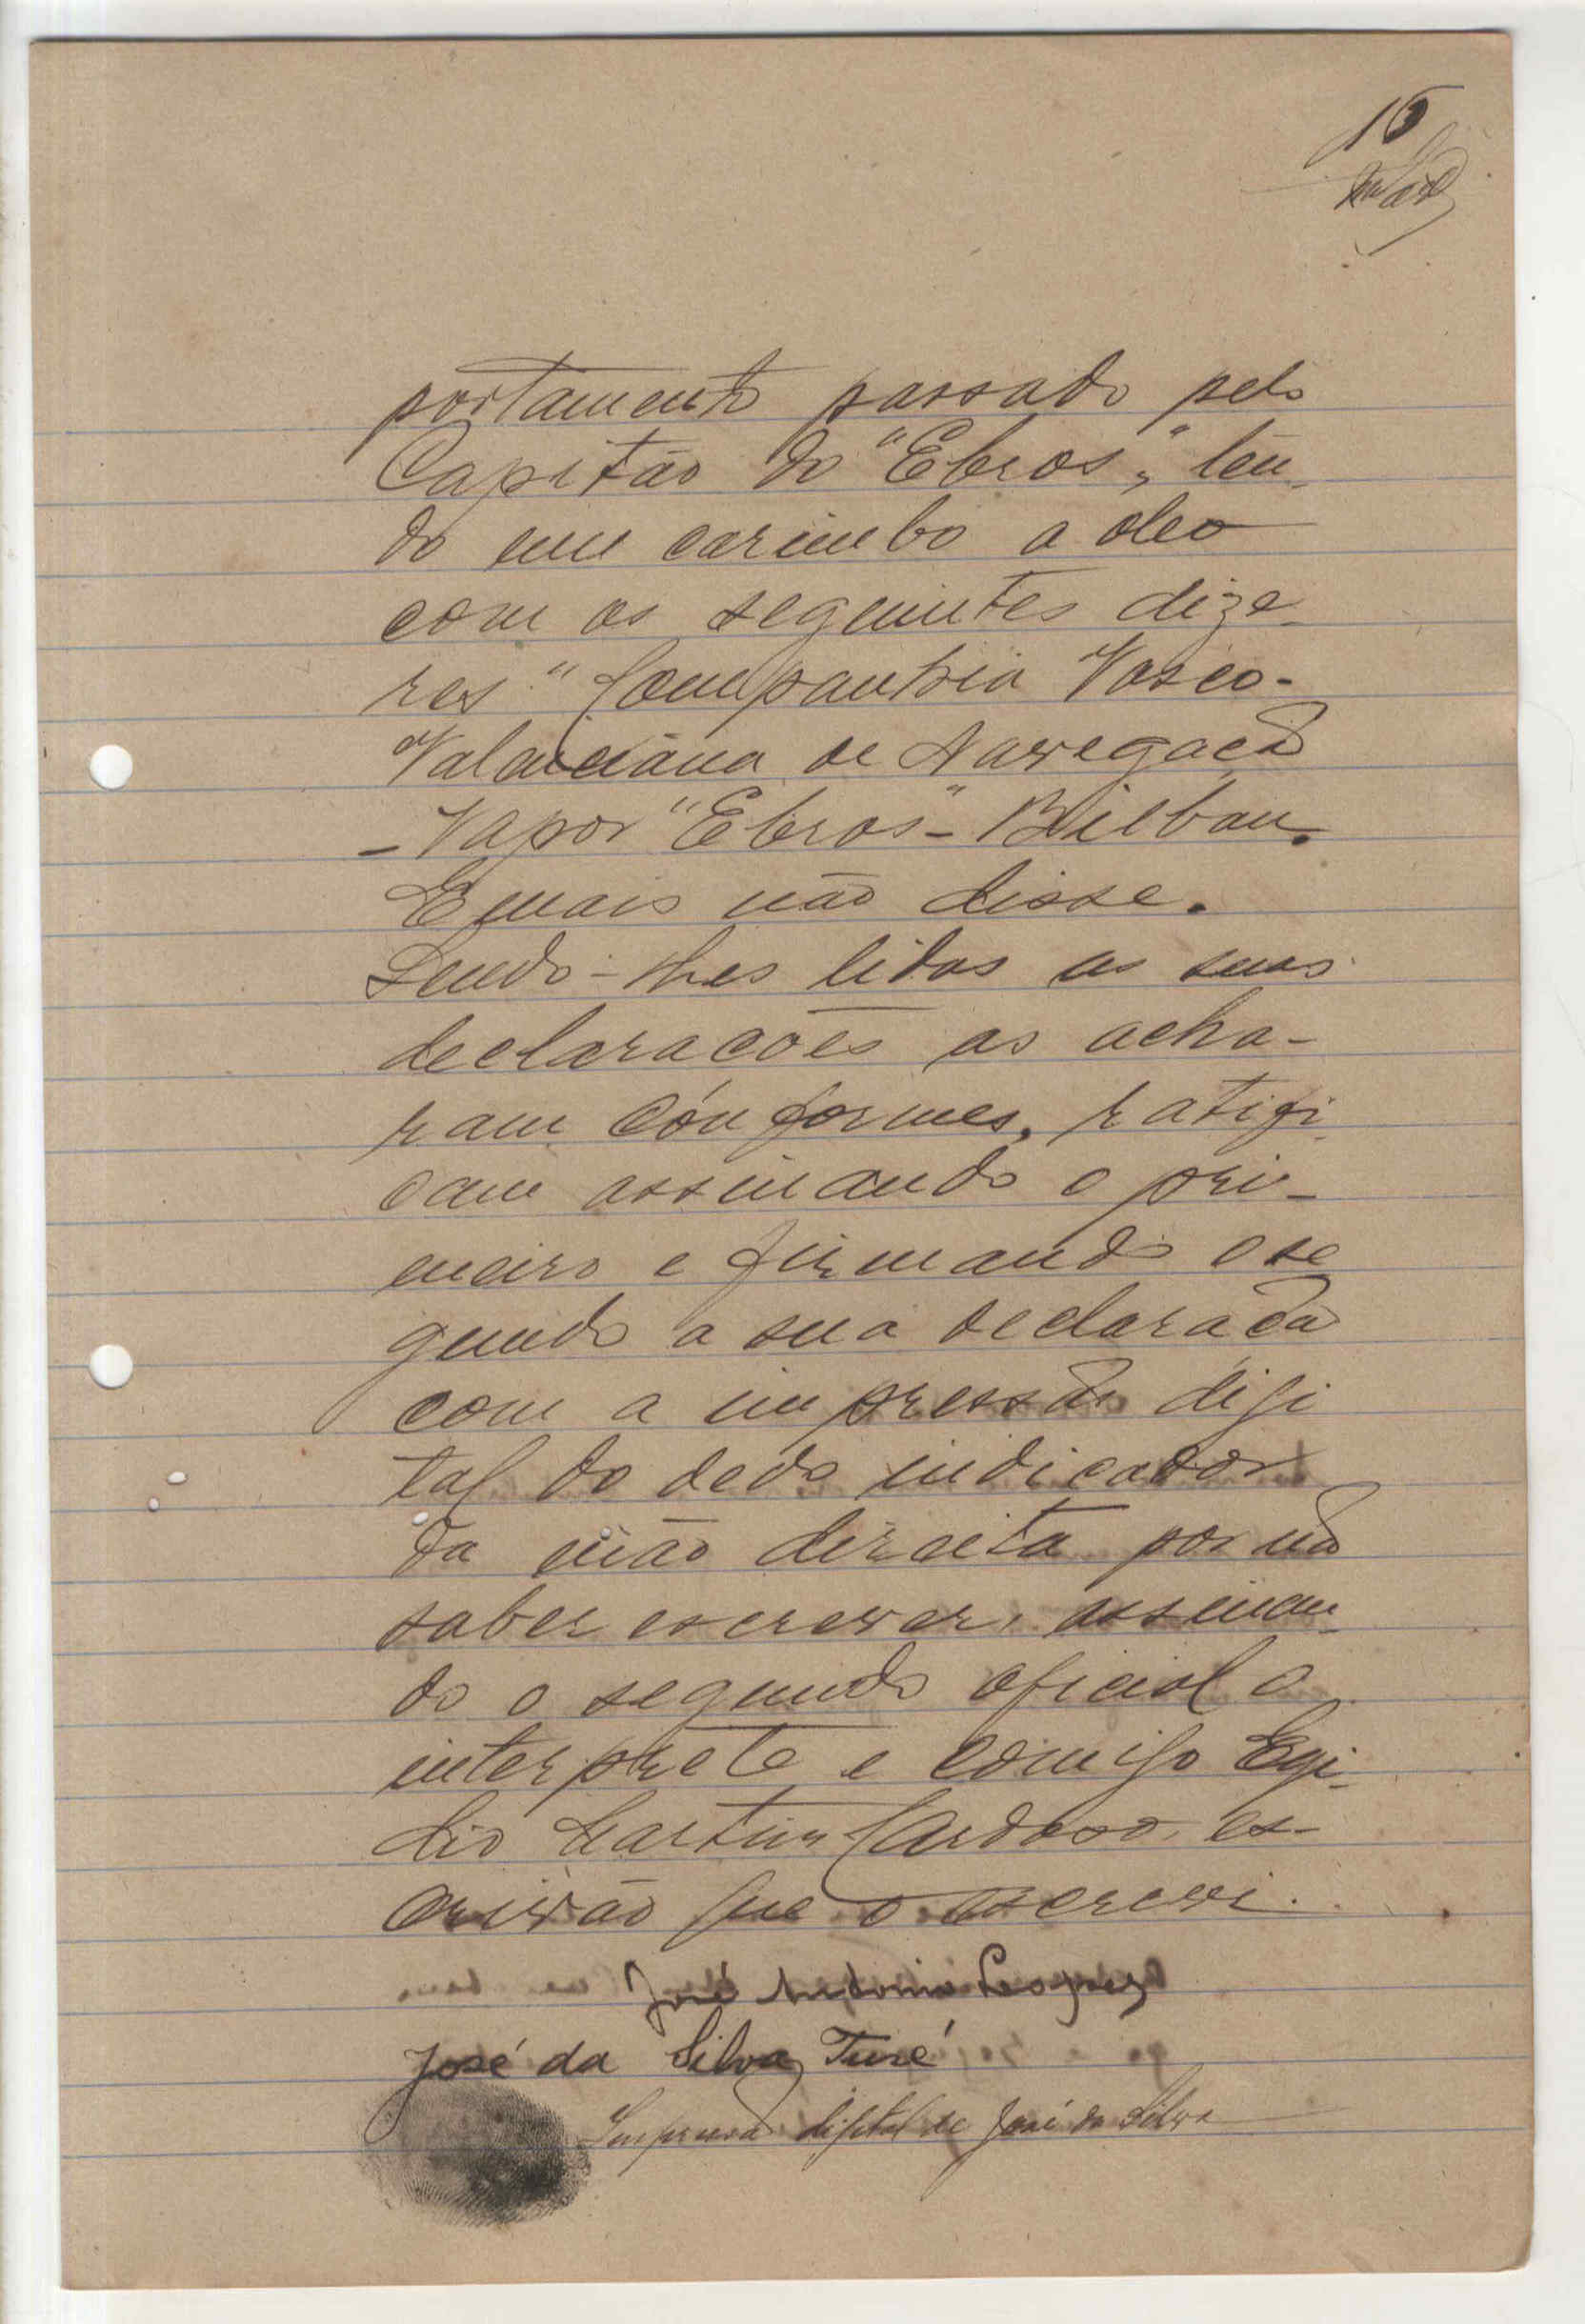 15
portamento passado pelo
Capitão do "Ebros", ten-
do um carimbo a oleo
com os seguintes dize-
res "Companhia Vasco-
Valanciana de Navegação
- Vapor "Ebros" - Bilbau.
E mais não disse.
Sendo-lhes lidas as suas
declaracões as acha-
ram cónformes, ratifi-
cam assinando o pri-
meiro e firmando o se
gundo a sua declaração
com a impressão digi
tal do dedo indicador
da mão direita por não
saber escrever, assinan-
do o segundo oficial o
interprete e comigo Egi-
dio Martins Cardoso, es-
crivão que o escrevi.
José Antonio Leopez
José da Silva Turé
Impressão digital de José da Silva